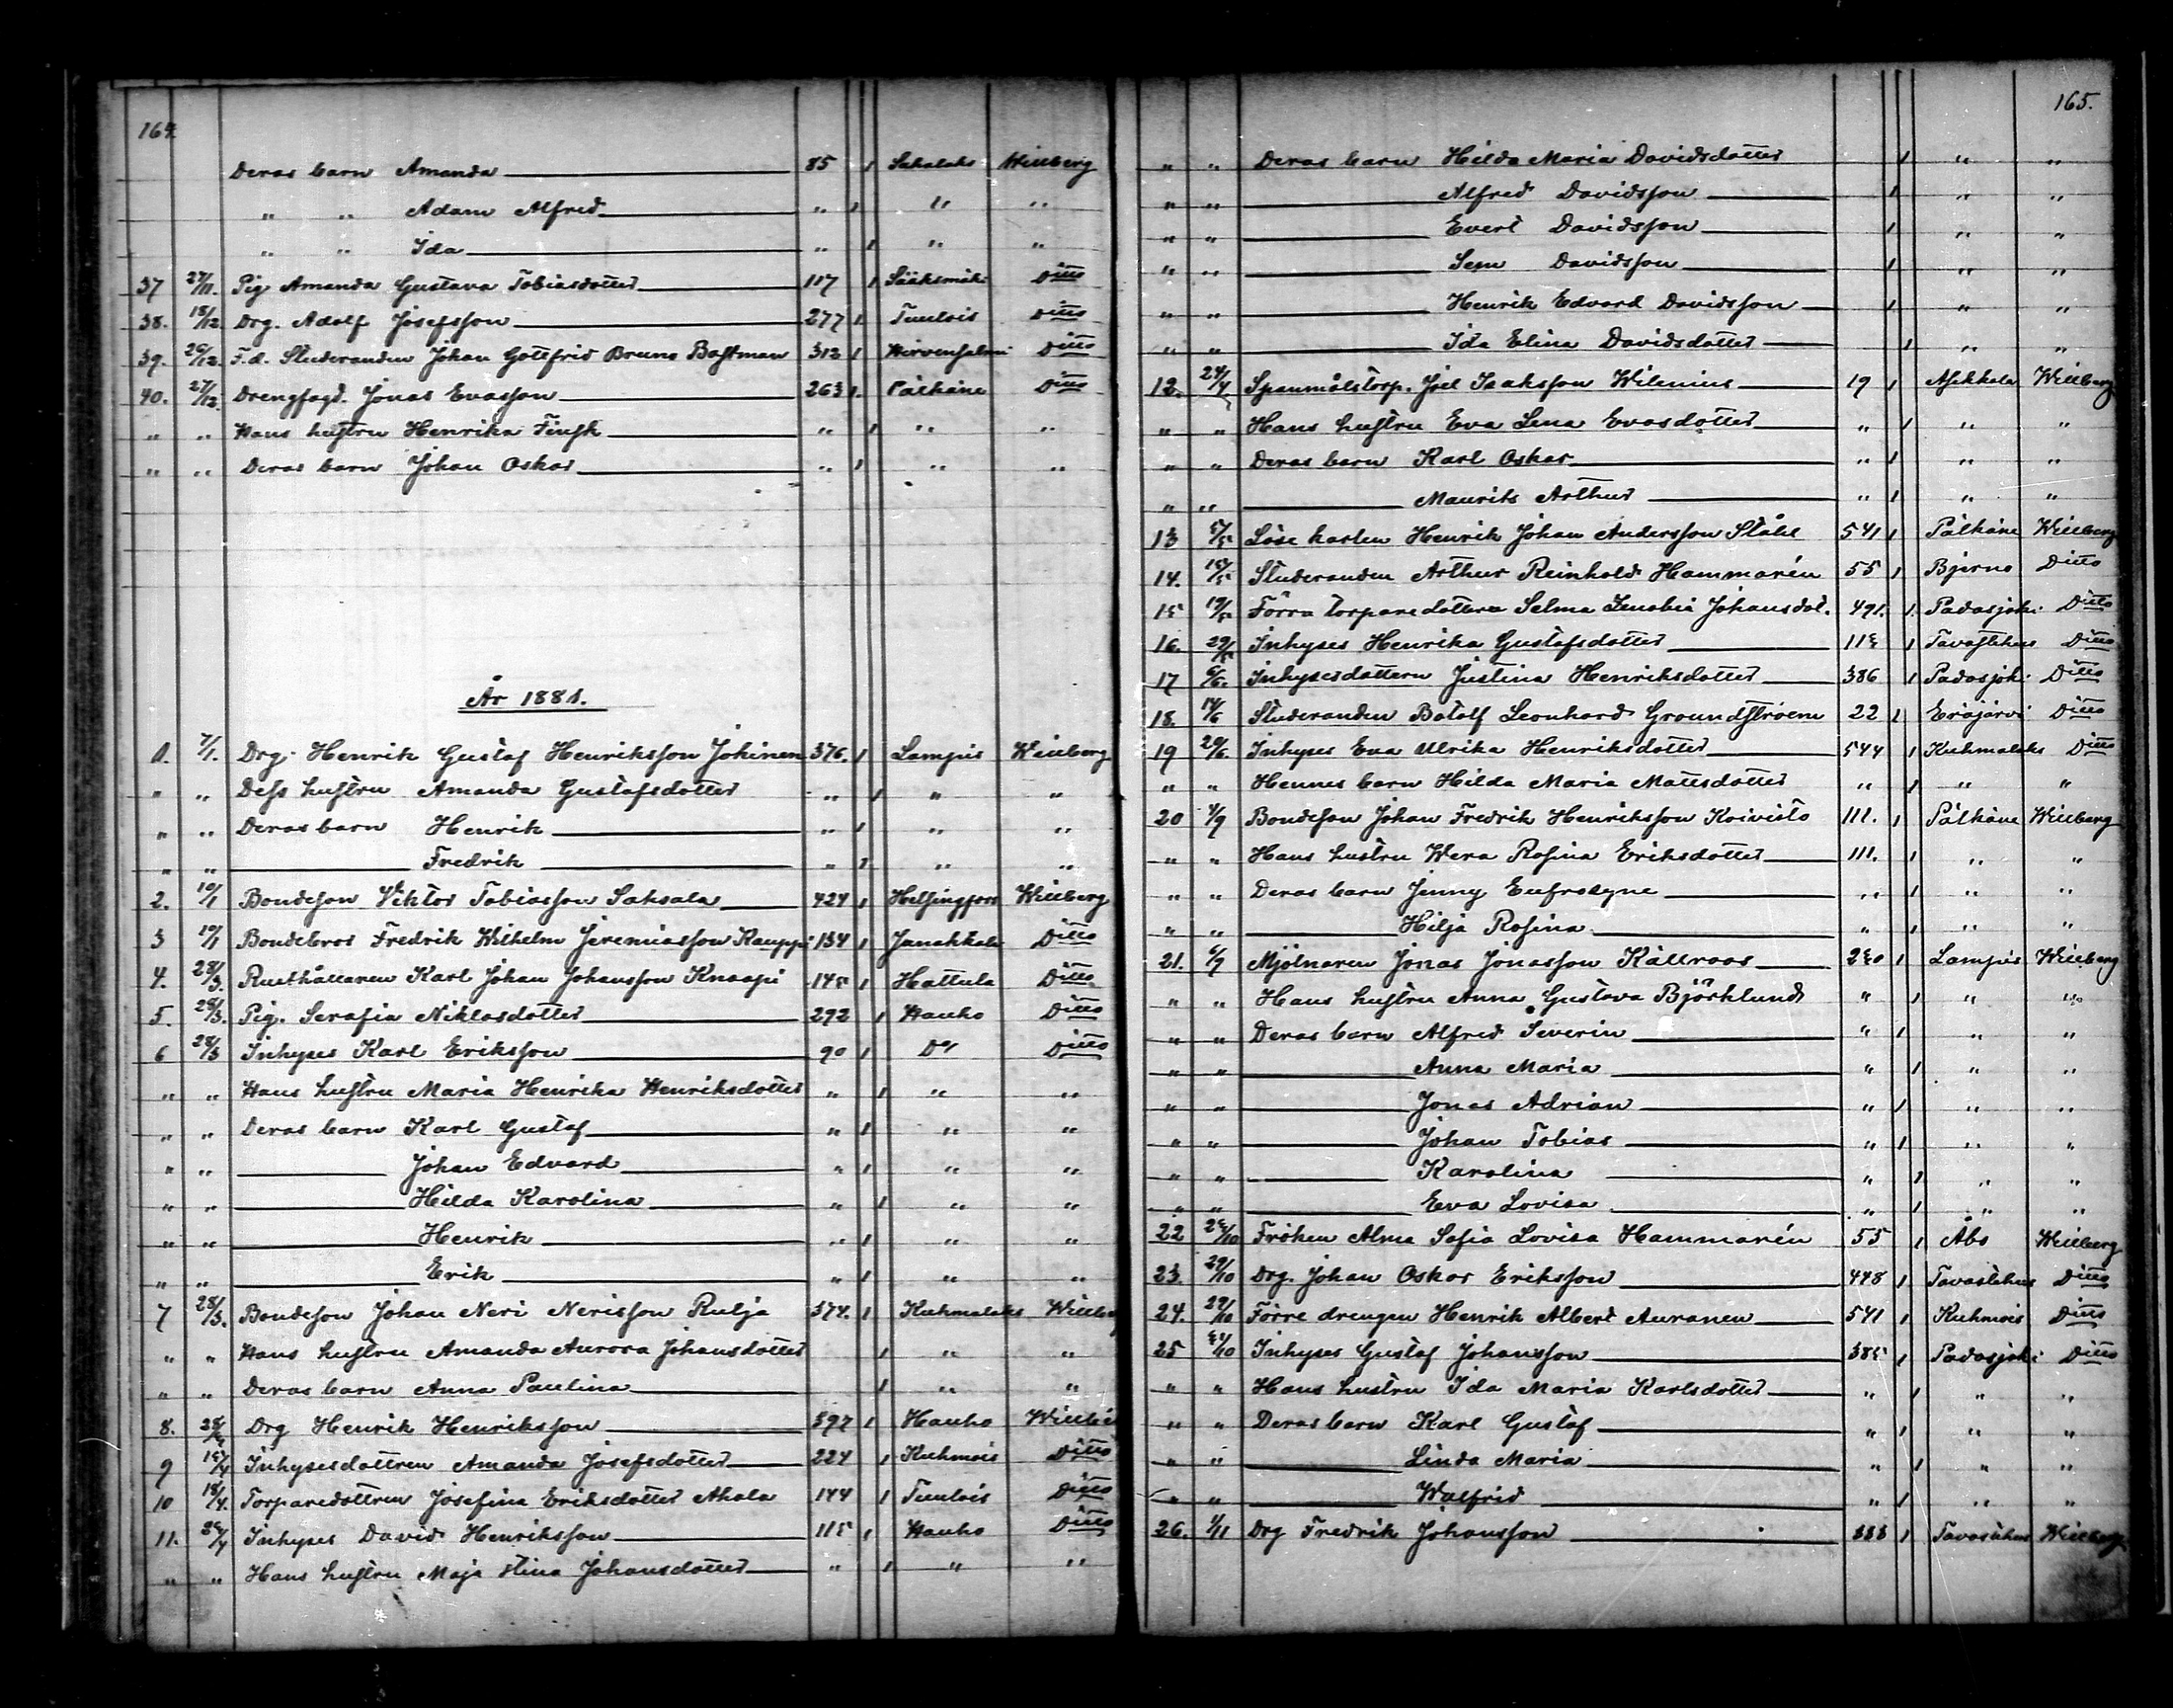 164.
Deras barn Amanda 85 1 Sahalaks Willberg
" " Adam Alfred " 1 " "
" " Ida " 1 " "
37 27/11. Pig Amanda Gustava Tobiasdotter 117 1 Sääksmäki Ditto
38. 18/12 Drg. Adolf Josefsson 277 1 Tuulois Ditto
39. 26/12 F.d. Studeranden Johan Gottfrid Bruno Bastman 312 1 Hirvensalmi Ditto
40. 27/12 Drengfogd. Jonas Evasson 263 1 Pälkäne Ditto
" " Hans hustru Henrika Finsk " 1 " "
" " Deras barn Johan Oskar " 1 " "
År 1881.
1. 7/1. Drg. Henrik Gustaf Henriksson Jokinen 376. 1 Lampis Willberg
" " Dess hustru Amanda Gustafsdotter " 1 " "
" " Deras barn Henrik " 1 " "
" " Fredrik " 1 " "
2. 10/1 Bondeson Viktor Tobiasson Saksala 424 1 Helsingfors Willberg
3 19/1 Bondebror Fredrik Wilhelm Jeremiasson Kauppi 134 1 Janakkala Ditto
4. 28/3. Rusthållaren Karl Johan Johansson Knaapi 145 1 Hattula Ditto
5. 28/3. Pig. Serafia Niklasdotter 292 1 Hauho Ditto
6 28/3 Inhyses Karl Eriksson 90 1 Do Ditto
" " Hans hustru Maria Henrika Henriksdotter " 1 " "
" " Deras barn Karl Gustaf " 1 " "
" " Johan Edvard " 1 " "
" " Hilda Karolina " 1 " "
" " Henrik " 1 " "
" " Erik " 1 " "
7 28/3. Bondeson Johan Neri Nerisson Rulja 374. 1 Kuhmalaks Willberg
" " Hans hustru Amanda Aurora Johansdotter 1 " "
" " Deras barn Anna Paulina 1 " "
8. Drg Henrik Henriksson 397 1 Hauho Willberg
9 15/4 Inhysesdottren Amanda Josefsdotter 224 1 Kuhmois Ditto
10 18/4. Torparedottren Josefina Eriksdotter Ahola 144 1 Tuulois Ditto
11. Inhyses David Henriksson 115 1 Hauho Ditto
" " Hans hustru Maja Stina Johansdotter " 1 " "
165.
" " Deras barn Hilda Maria Davidsdotter 1 " "
" " Alfred Davidsson 1 " "
" " Evert Davidsson 1 " "
" " Sem Davidsson 1 " "
" " Henrik Edvard Davidsson 1 " "
" " Ida Elina Davidsdotter 1 " "
12. 24/4. Spanmålstorp. Joel Isaksson Wilenius 19 1 Asikkala Willberg
" " Hans hustru Eva Lena Evasdotter " 1 " "
" " Deras barn Karl Oskar " 1 " "
" " Maurits Arthur " 1 " "
13 5/5 Löse karlen Henrik Johan Andersson Ståhl 541 1 Pälkäne Willberg
14. 15/5 Studeranden Arthur Reinhold Hammarén 55 1 Bjerno Ditto
15 19/5 Förra torparedottren Selma Zenobia Johansdot. 491. 1. Padasjoki Ditto
16. 29/5 Inhyses Henrika Gustafsdotter 115 1 Tavastehus Ditto
17 6/6. Inhysesdottern Justina Henriksdotter 386 1 Padasjoki Ditto
18. 14/6 Studeranden Botolf Leonhard Groundstroem 22 1 Eräjärvi Ditto
19 20/6. Inhyses Eva Ulrika Henriksdotter 544 1 Kuhmalaks Ditto
" " Hennes barn Hilda Maria Mattsdotter " 1 " "
20 Bondeson Johan Fredrik Henriksson Koivisto 111. 1 Pälkäne Willberg
" " Hans hustru Wera Rosina Eriksdotter 111. 1 " "
" " Deras barn Jenny Eufrosyne " 1 " "
" " Hilja Rosina " 1 " "
21. Mjölnaren Jonas Jonasson Källroos 250 1 Lampis Willberg
" " Hans hustru Anna Gustava Björklund " 1 " "
" " Deras barn Alfred Severin " 1 " "
" " Anna Maria " 1 " "
" " Jonas Adrian " 1 " "
" " Johan Tobias " 1 " "
" " Karolina " 1 " "
" " Eva Lovisa " 1 " "
22 25/10 Fröken Alma Sofia Lovisa Hammarén 55 1 Åbo Willberg
23. 29/10 Drg. Johan Oskar Eriksson 448 1 Tavastehus Ditto
24. 29/10 Förre drengen Henrik Albert Auranen 541 1 Kuhmois Ditto
25 31/10 Inhyses Gustaf Johansson 385 1 Padasjoki Ditto
" " Hans hustru Ida Maria Karlsdotter " 1 " "
" " Deras barn Karl Gustaf " 1 " "
" " Linda Maria " 1 " "
" " Walfrid " 1 " "
26. 1/11 Drg Fredrik Johansson 333 1 Tavastehus Willberg